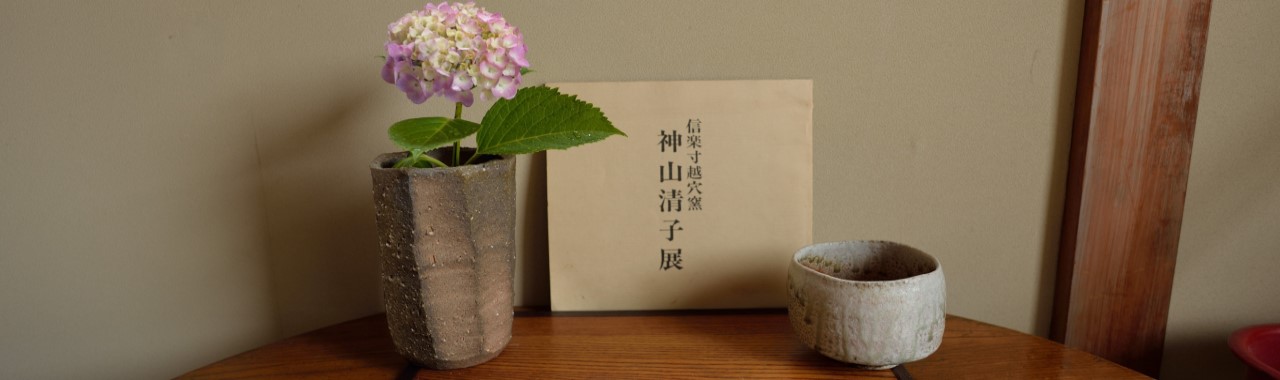 信楽寸越穴窯
神山清子展